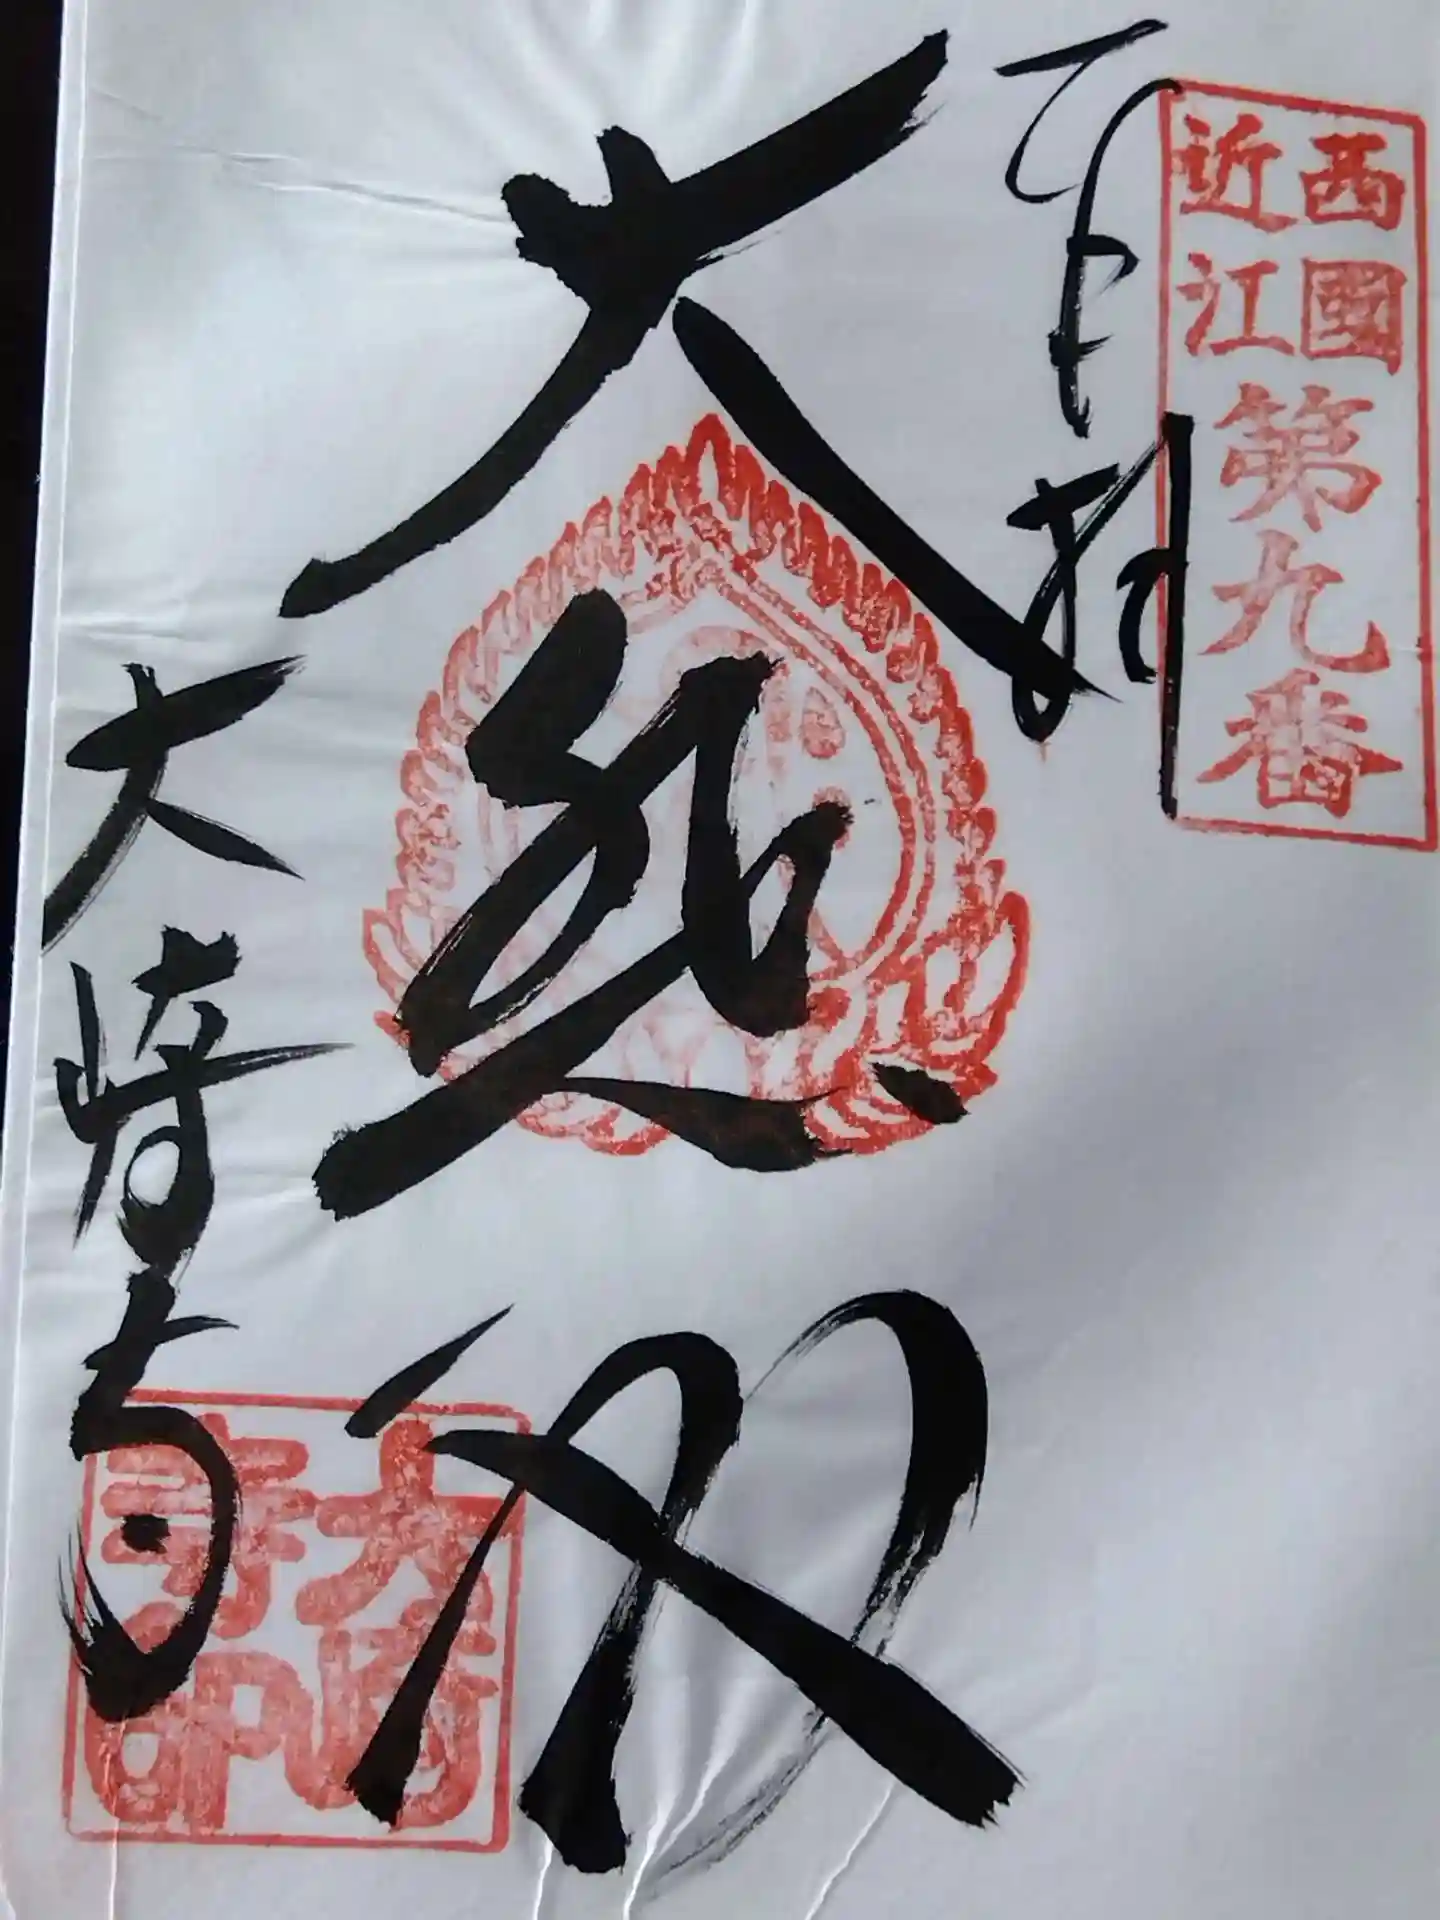 西國
近江
第九番
奉拝
大悲殿
大崎寺
大崎
寺印